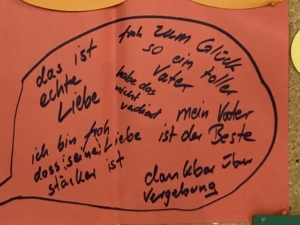 das ist
echte
Liebe
froh zum Glück
so ein toller
Vater
habe das
nicht
verdient
mein Vater
ist der Beste
ich bin froh
dass seine Liebe
stärker ist
dankbar über
Vergebung